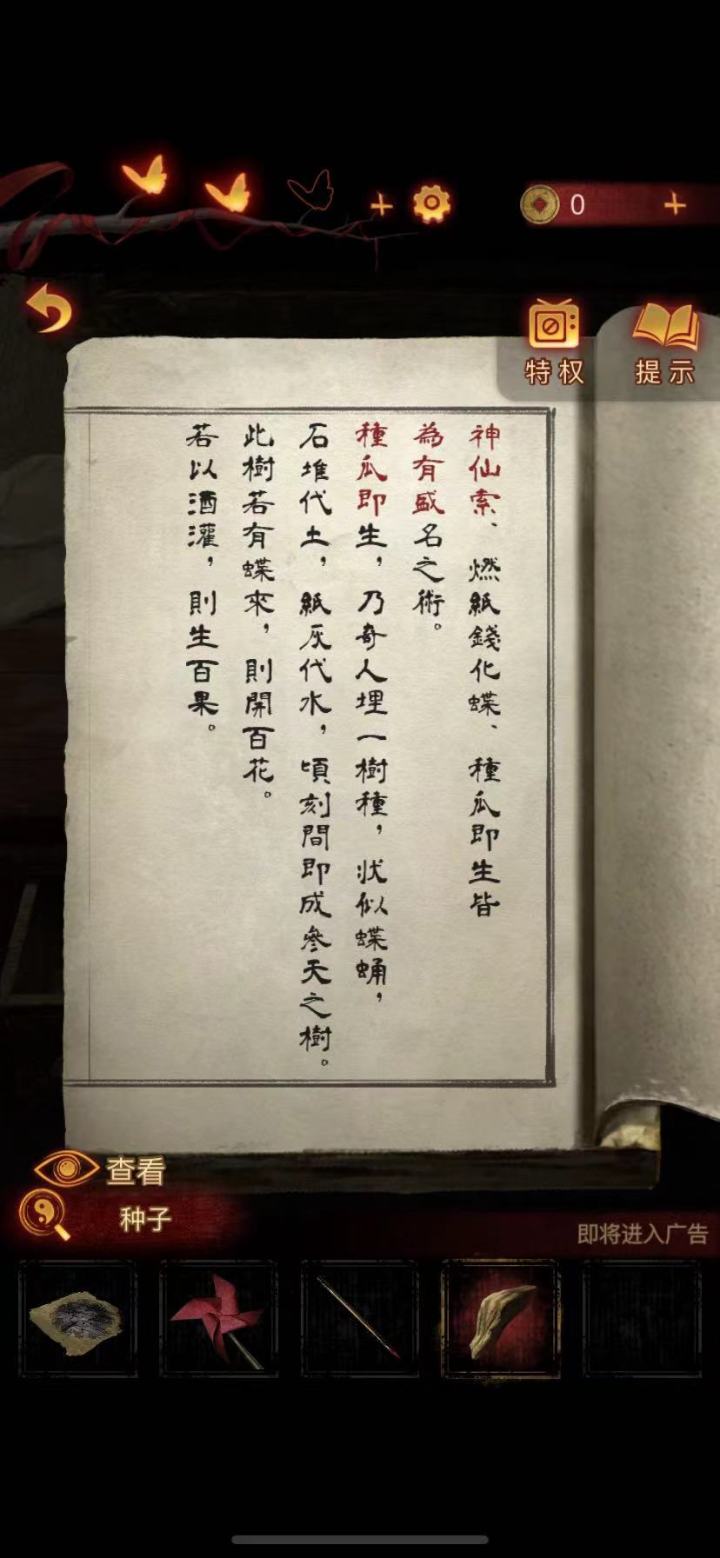 0
特权
提示
神仙索、燃紙錢化蝶、種瓜即生皆
為有盛名之術。
種瓜即生，乃奇人埋一樹種，狀似蝶蛹，
石堆代土，紙灰代水，頃刻間即成參天之樹。
此樹若有蝶來，則開百花。
若以酒灌，則生百果。
查看
种子
即将进入广告